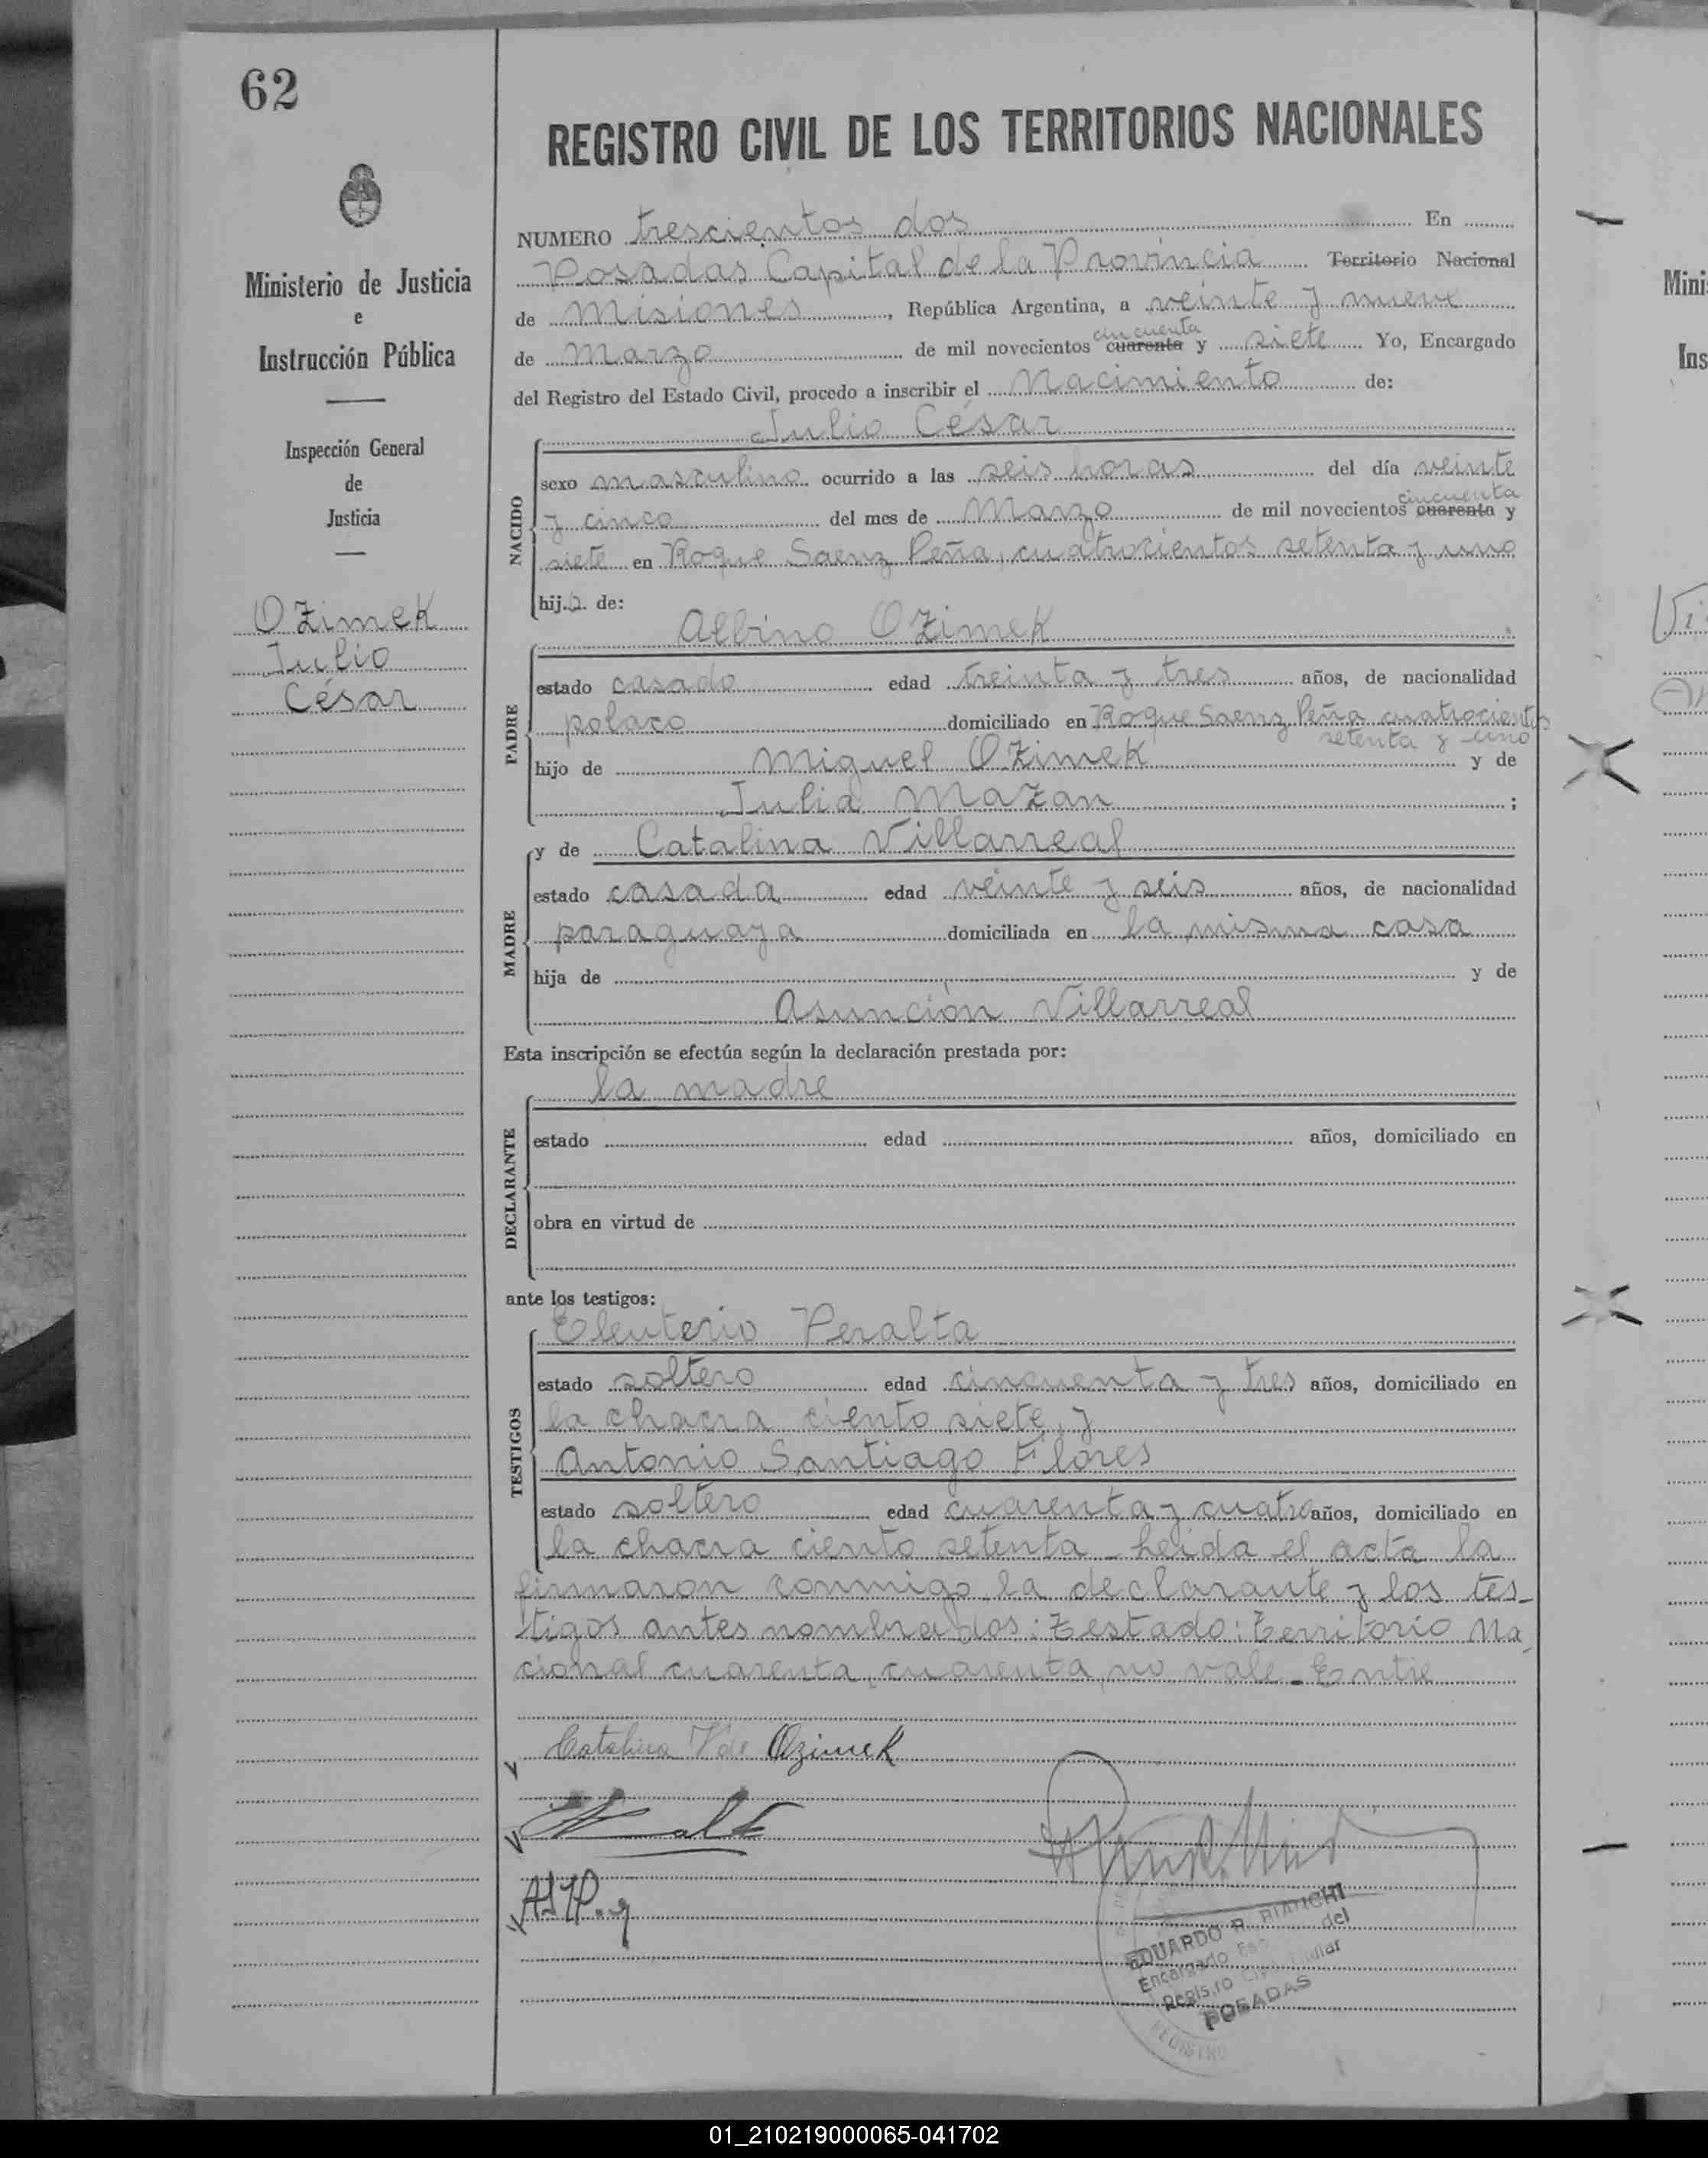 62
REGISTRO CIVIL DE LOS TERRITORIOS NACIONALES
Ministerio de Justicia
e
Instrucción Pública
Inspección General
de
Justicia
OZimek
Julio
César
NUMERO trescientos dos En
Posadas Capital de la Provincia Territorio Nacional
de Misiones, República Argentina, a veinte y nueve
de Marzo de mil novecientos cuarenta cincuenta y siete Yo, Encargado
del Registro del Estado Civil, procedo a inscribir el Nacimiento de:
Julio César
NACIDO
sexo masculino ocurrido a las seis horas del día veinte
y cinco del mes de Marzo de mil novecientos cuarenta cincuenta y
siete en Roque Saenz Peña, cuatrocientos setenta y uno
hijo de:
Albino OZimek
PADRE
estado casado edad treinta y tres años, de nacionalidad
polaco domiciliado en Roque Saenz Peña cuatrocientos
setenta y uno
hijo de Miguel OZimek y de
Julia MaZan ;
MADRE
y de Catalina Villarreal
estado casada edad veinte y seis años, de nacionalidad
paraguaya domiciliada en la misma casa
hija de y de
Asunción Villarreal
Esta inscripción se efectúa según la declaración prestada por:
la madre
DECLARANTE
estado edad años, domiciliado en
obra en virtud de
ante los testigos:
TESTIGOS
Eleuterio Peralta
estado soltero edad cincuenta y tres años, domiciliado en
la chacra ciento siete, y
Antonio Santiago Flores
estado soltero edad cuarenta y cuatro años, domiciliado en
la chacra ciento setenta - leida el acta la
firmaron conmigo, la declarante y los tes-
tigos antes nombrados: Testado: Territorio Na
cional cuarenta, cuarenta, no vale - Entre
Catalina V de Ozimek
EDUARDO R. BIANCHI
Encargado del
Registro Civil
POSADAS
REGISTRO
Mini
Ins
01_210219000065-041702